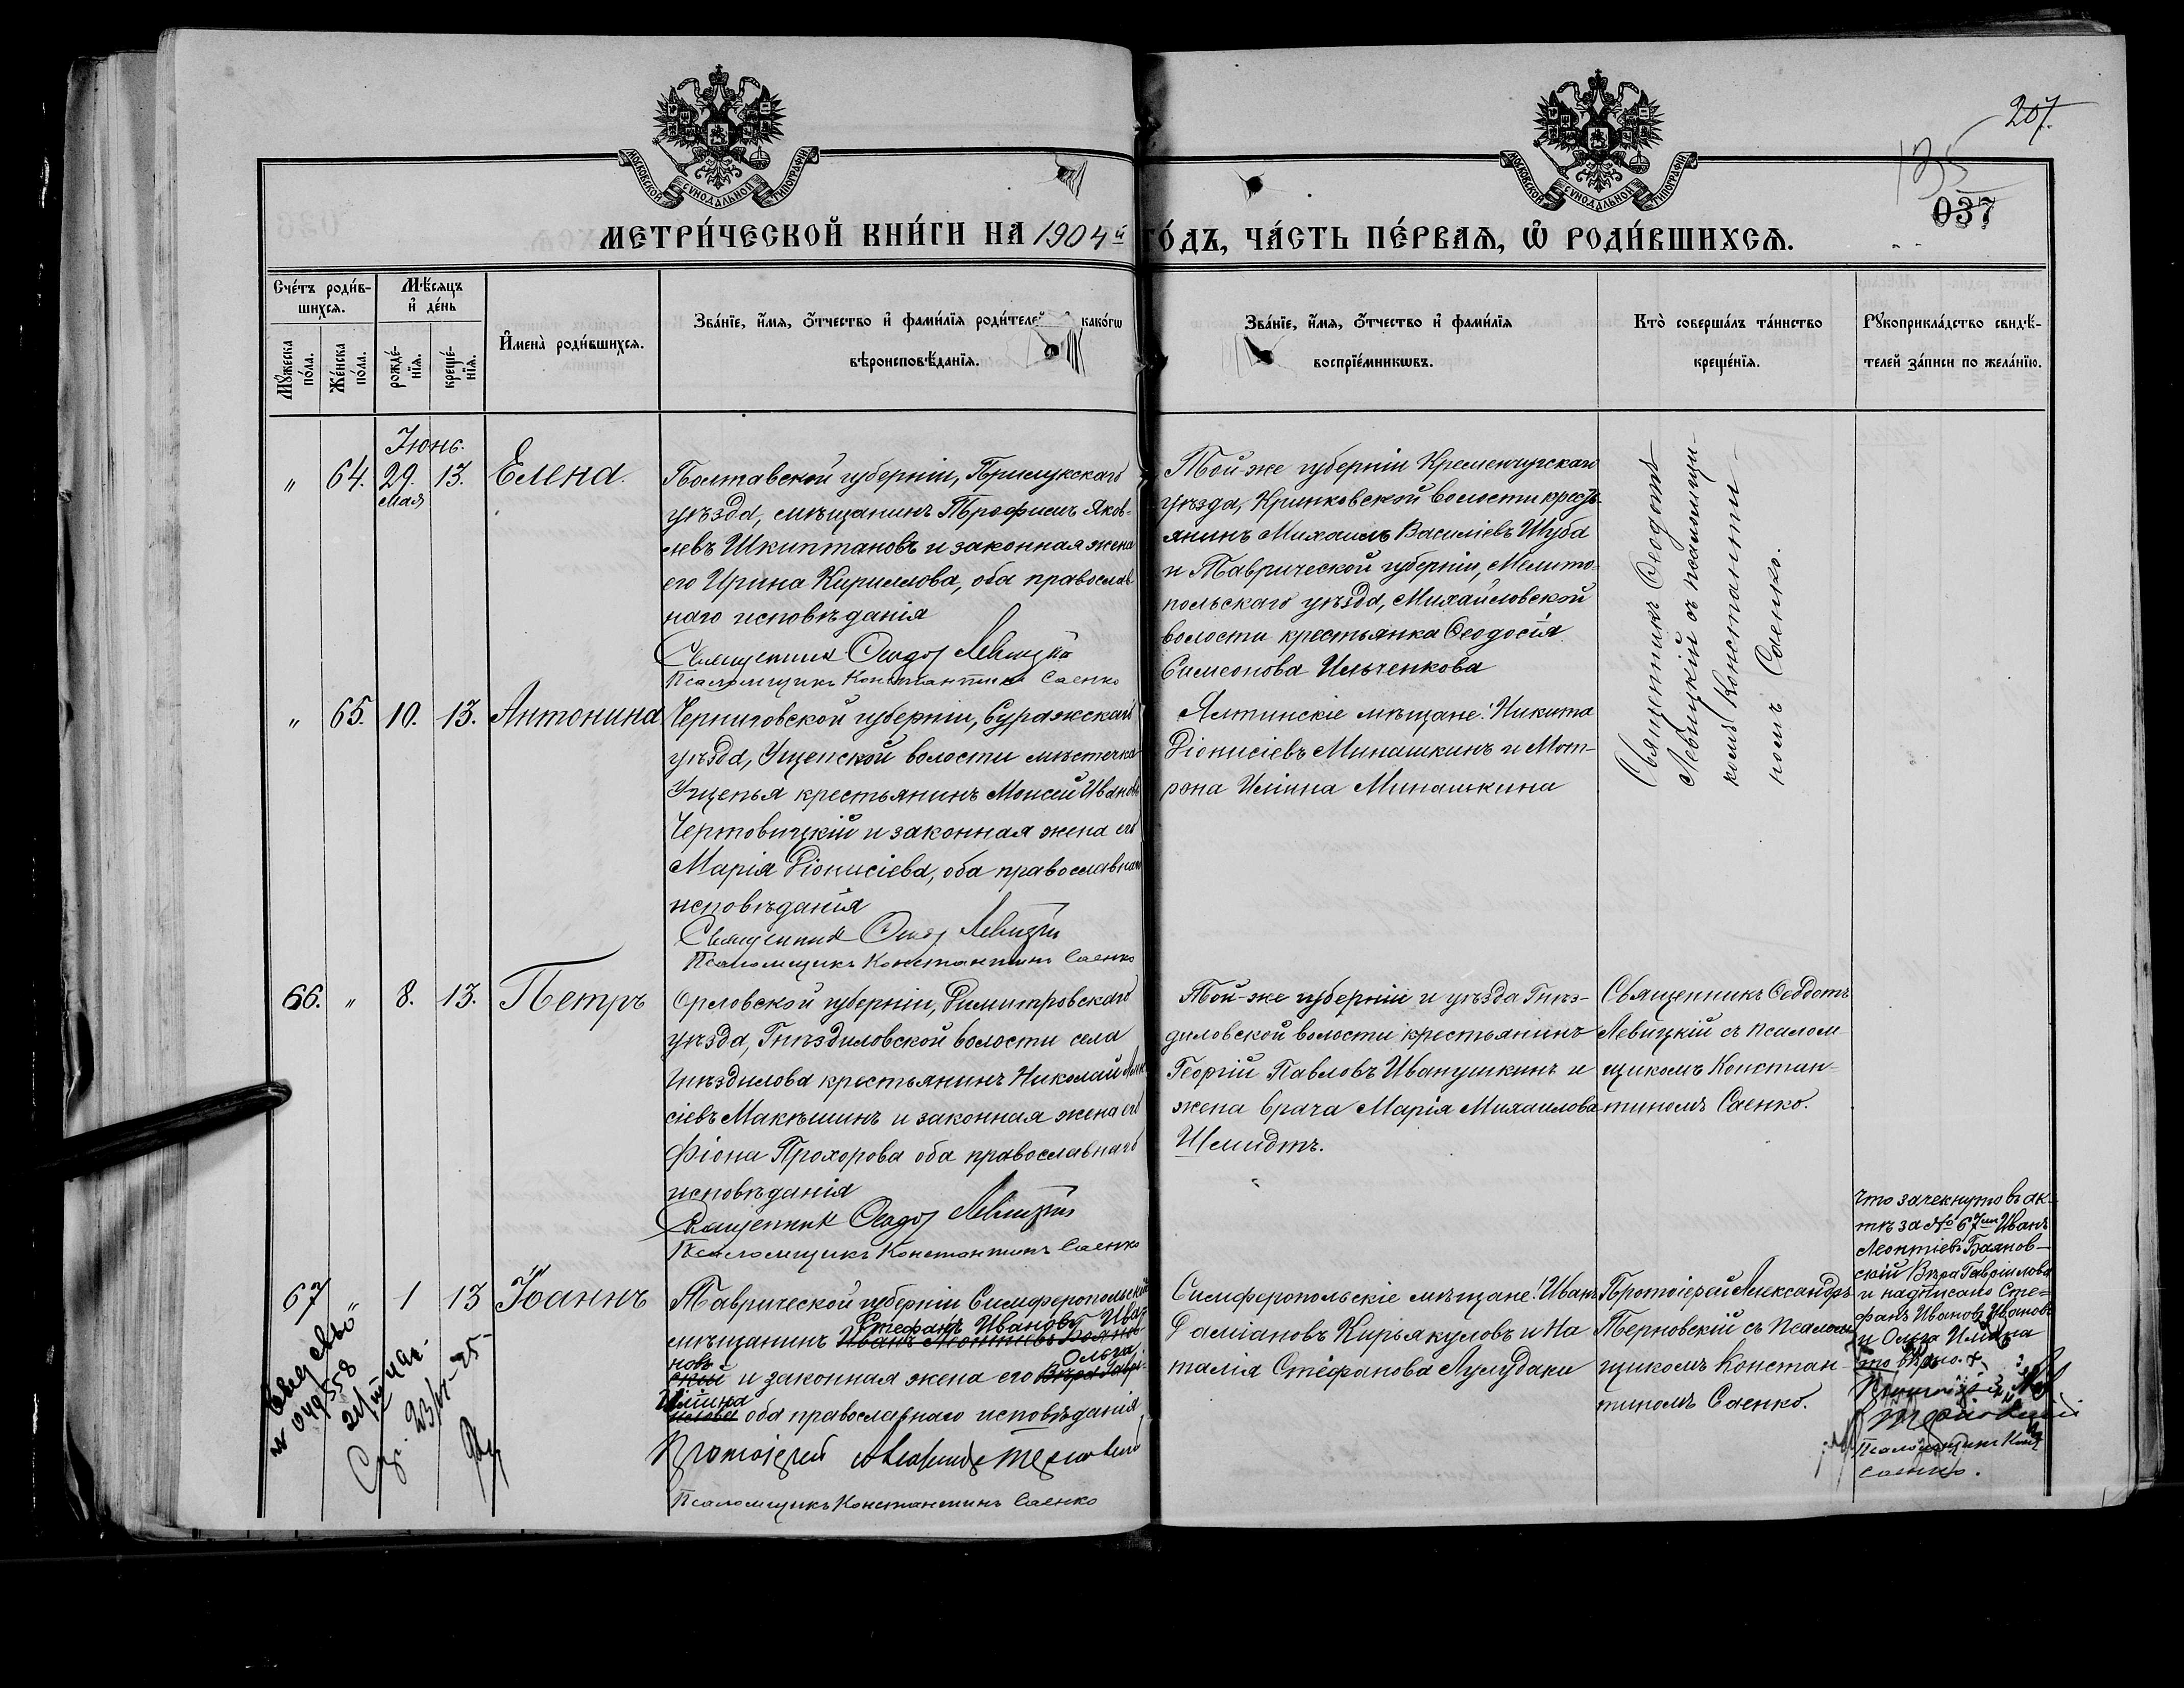 207.
135
037
МОСКОВСКОЙ СѴНОДАЛЬНОЙ ТИПОГРАФІИ
МОСКОВСКОЙ СѴНОДАЛЬНОЙ ТИПОГРАФІИ
МЕТРИ́ЧЕСКОЙ КНИ́ГИ НА 1904й ГО́ДЪ, ЧА́СТЬ ПЕ́РВАѦ, Ѽ РОДИ́ВШИХСѦ.
Сче́тъ роди́в-
шихсѧ.
Мꙋ́жеска
по́ла.
Же́нска
по́ла.
Мѣ́сѧцъ
и҆ де́нь
рожде́-
нїѧ.
креще́-
нїѧ.
И҆мена̀ роди́вшихсѧ.
Зва́нїе, и҆́мѧ, ѻ҆́тчество и҆ фами́лїѧ роди́телей како́гѡ
вѣроисповѣ́данїѧ.
Зва́нїе, и҆́мѧ, ѻ҆́тчество и҆ фами́лїѧ
воспрїе́мникѡвъ.
Кто̀ соверша́лъ та́инство
креще́нїѧ.
Рꙋкоприкла́дство свидѣ́-
телей за́писи по жела́нїю.
Іюнь.
" 64. 29. 13. Елена.
Мая
Полтавской губерніи, Прилукскаго
уѣзда, мѣщанинъ Трофимъ Яков-
левъ Шкиптановъ и законная жена
его Ирина Кириллова, оба православ
наго исповѣданія
Священникъ Ѳеодот Левицкій
Псаломщикъ Константинъ Саенко
Той-же губерніи Кременчугскаго
уѣзда, Кринковской волости кресть
янинъ Михаилъ Василіевъ Шуба
и Таврической губерніи, Мелито-
польскаго уѣзда, Михайловской
волости крестьянка Ѳеодосія
Симеонова Ильченкова
Священникъ Ѳеодотъ
Левицкій съ псаломщи-
комъ Константи-
номъ Саенко.
" 65. 10. 13. Антонина
Черниговской губерніи, Суражскаго
уѣзда, Ущепской волости мѣстечка
Ущепья крестьянинъ Моисей Ивановъ
Чертовицкій и законная жена его
Марія Діонисіева, оба православнаго
исповѣданія
Священникъ Ѳеод Левицкій
Псаломщикъ Константинъ Саенко
Ялтинскіе мѣщане: Никита
Діонисіевъ Минашкинъ и Мот-
рона Иліина Минашкина
66. " 8. 13. Петръ
Орловской губерніи, Димитровскаго
уѣзда, Гнѣздиловской волости села
Гнѣздилова крестьянинъ Николай Алек
сіевъ Макѣшинъ и законная жена его
Фіона Прохорова оба православнаго
исповѣданія
Священникъ Ѳеодот Левицкій
Псаломщикъ Константинъ Саенко
Той-же губерніи и уѣзда Гнѣз-
диловской волости крестьянинъ
Георгій Павловъ Иванушкинъ и
жена врача Марія Михаилова
Шмидтъ.
Священникъ Ѳеодотъ
Левицкій съ псалом
щикомъ Констан-
тиномъ Саенко.
67 " 1 13 Іоаннъ
Таврической губерніи Симферопольскій
Стефанъ Ивановъ Ива
мѣщанинъ Иванъ Леонтіевъ Боянов-
новъ Ольга
скій и законная жена его Вѣра Гаврі-
Иліина
илова оба православнаго исповѣданія
Протоіерей Александръ Терновскій
Псаломщикъ Константинъ Саенко
Симферопольскіе мѣщане: Иванъ
Даміановъ Кирьякуловъ и На
талія Стефанова Лулудаки
Протоіерей Александръ
Терновскій съ псалом
щикомъ Констан-
тиномъ Саенко.
Что зачекнуто въ ак-
тѣ за № 67мъ Иванъ
Леонтіевъ Боянов-
скій Вѣра Гавріилова
и надписано Сте-
фанъ Ивановъ Ивановъ
и Ольга Иліина
то вѣрно.
Протоіерей
Терновскій
Псаломщикъ Конст
Саенко.
№ 049558
23/VI-25